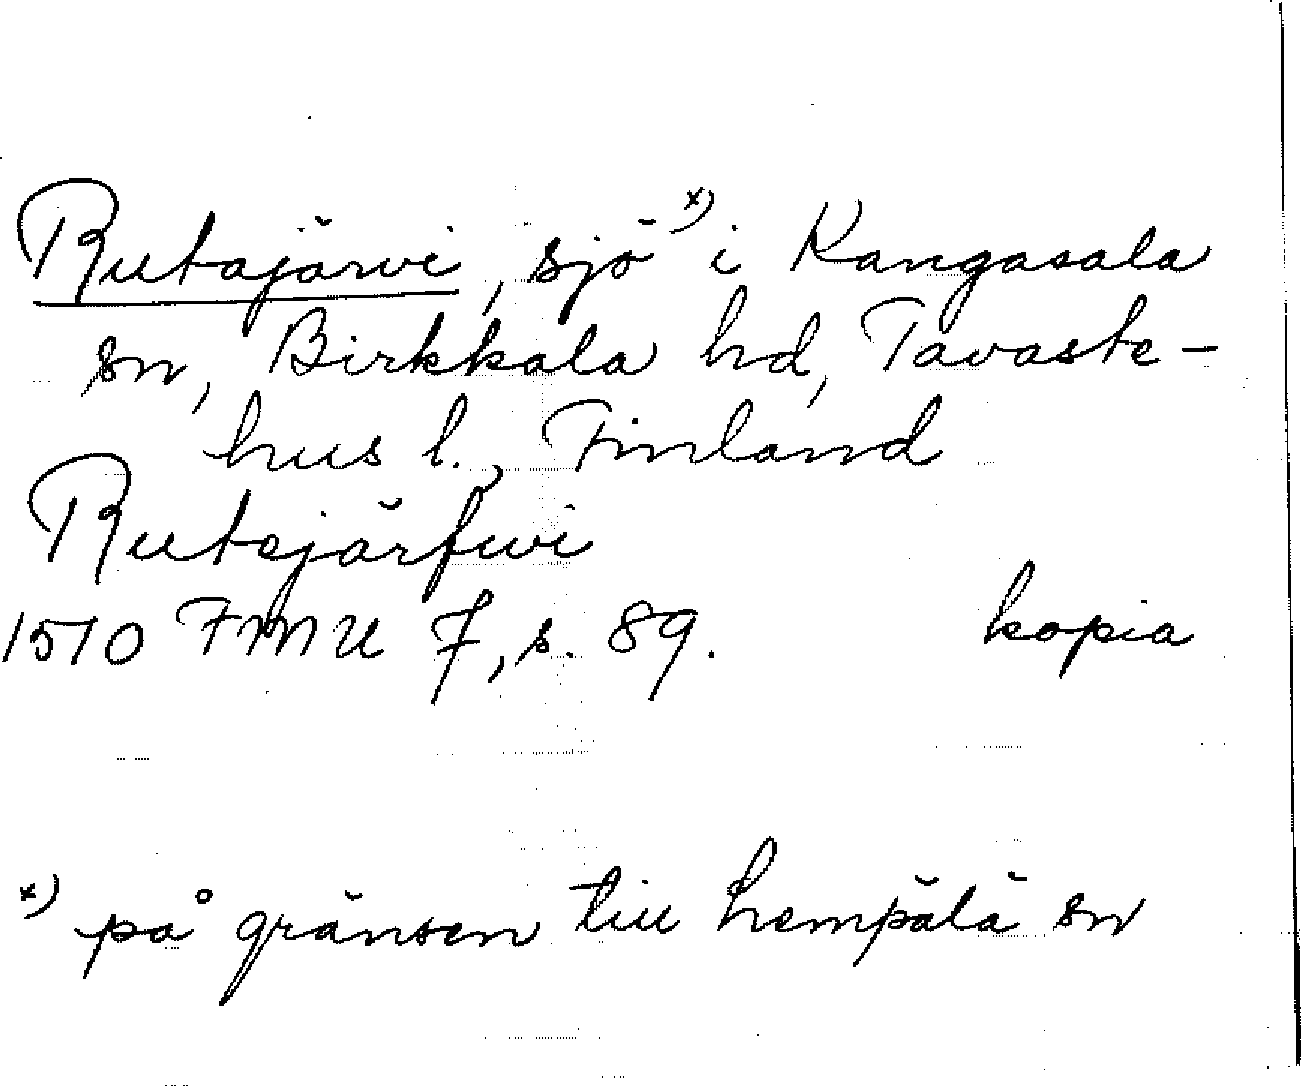 Rutajärvi, sjö x) i Kangasala
sn, Birkkala hd, Tavaste-
hus l., Finland
Rutajärfwi
1510 FMU 7, s. 89. kopia
x) på gränsen till Lempälä sn